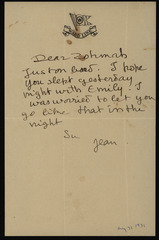 Dear Fatimah
Just on bed. I hope
you slept yesterday
night with Emily. I
was worried to let you
go like that in the
night
Su
Jean
Aug 31 1931